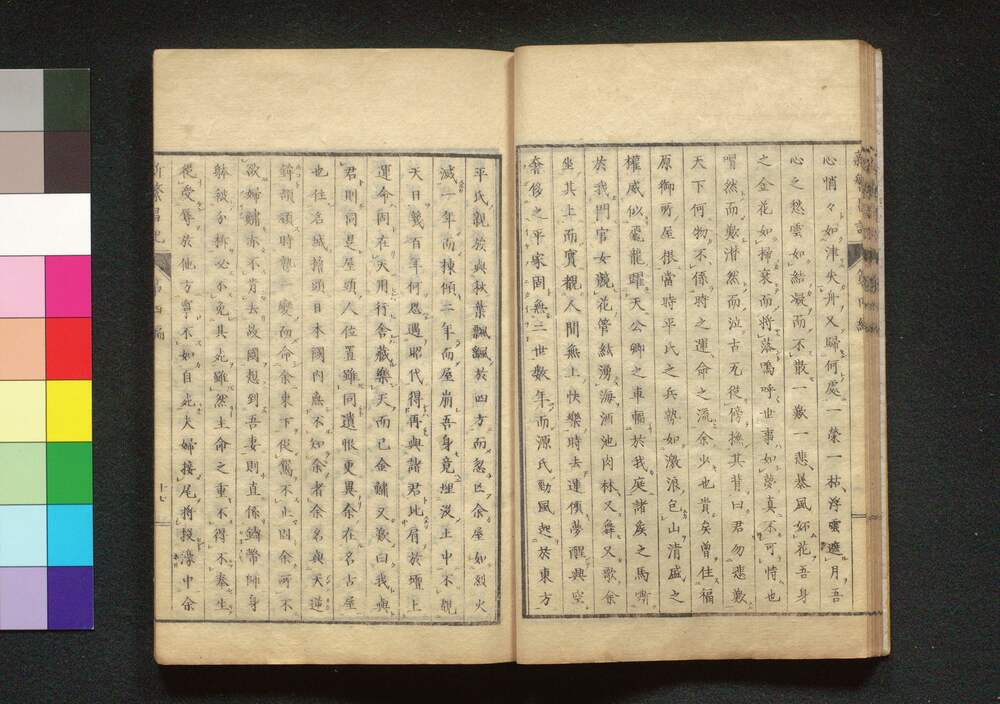 心悄々如津失舟又歸何處一榮一枯浮雲遮月吾
心之愁雲如結凝而不散一歎一悲暴風妬花吾身
之金花如掃衰而將落嗚呼世事如夢真不可恃也
喟然而歎潸然而泣古瓦從傍撫其背曰君勿悲歎
天下何物不係時之運命之流余少也貴矣曾住福
原御所屋根當時平氏之兵勢如激浪包山清盛之
權威似毫龍躍天公卿之車輻於我庭諸矦之馬嘶
於我門官女觀花管絃湧海酒池肉林又舞又歌余
坐其上而實觀人間無上快樂時去運傾夢醒興空
奢侈之平家固無二世數年而源氏勁風起於東方
平氏親族與秋葉飄飄於四方而忽亡余屋如烈火
滅一年而棟傾二年而屋崩吾身竟埋沒土中不覩
天日幾百年何思遇昭代得再與諸君比肩於壇上
運命固在天用行舍藏樂天而已金鯱又歎曰我與
君則同是屋頭人位置雖同遺恨更異余在名古屋
也住名城檐頭日本國內無不知余者余名與天道
欲婦鯱亦不肯去故國想到吾妻則直係鑄幣師身
躰被分拆必不免其死雖然主命之重不得不奉生
從受辱於他方寧不如自死夫婦接尾將投濠中余
新繁昌記
第四編
十七